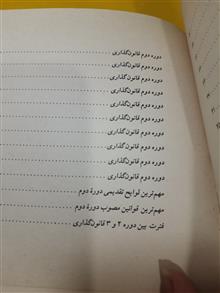 دوره دوم قانون‌گذاری
دوره دوم قانون‌گذاری
دوره دوم قانون‌گذاری
دوره دوم قانون‌گذاری
دوره دوم قانون‌گذاری
دوره دوم قانون‌گذاری
دوره دوم قانون‌گذاری
دوره دوم قانون‌گذاری
دوره دوم قانون‌گذاری
دوره دوم قانون‌گذاری
مهم‌ترین لوایح تقدیمی دورۀ دوم
مهم‌ترین قوانین مصوب دورۀ دوم
فترت بین دوره ۲ و ۳ قانون‌گذاری